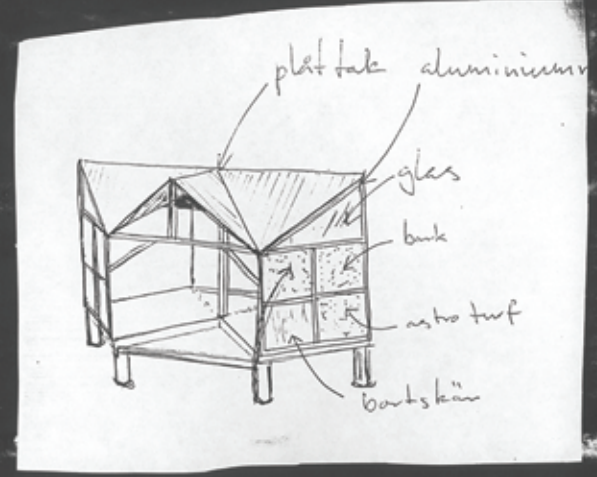 plåt tak aluminium
glas
bark
astro turf